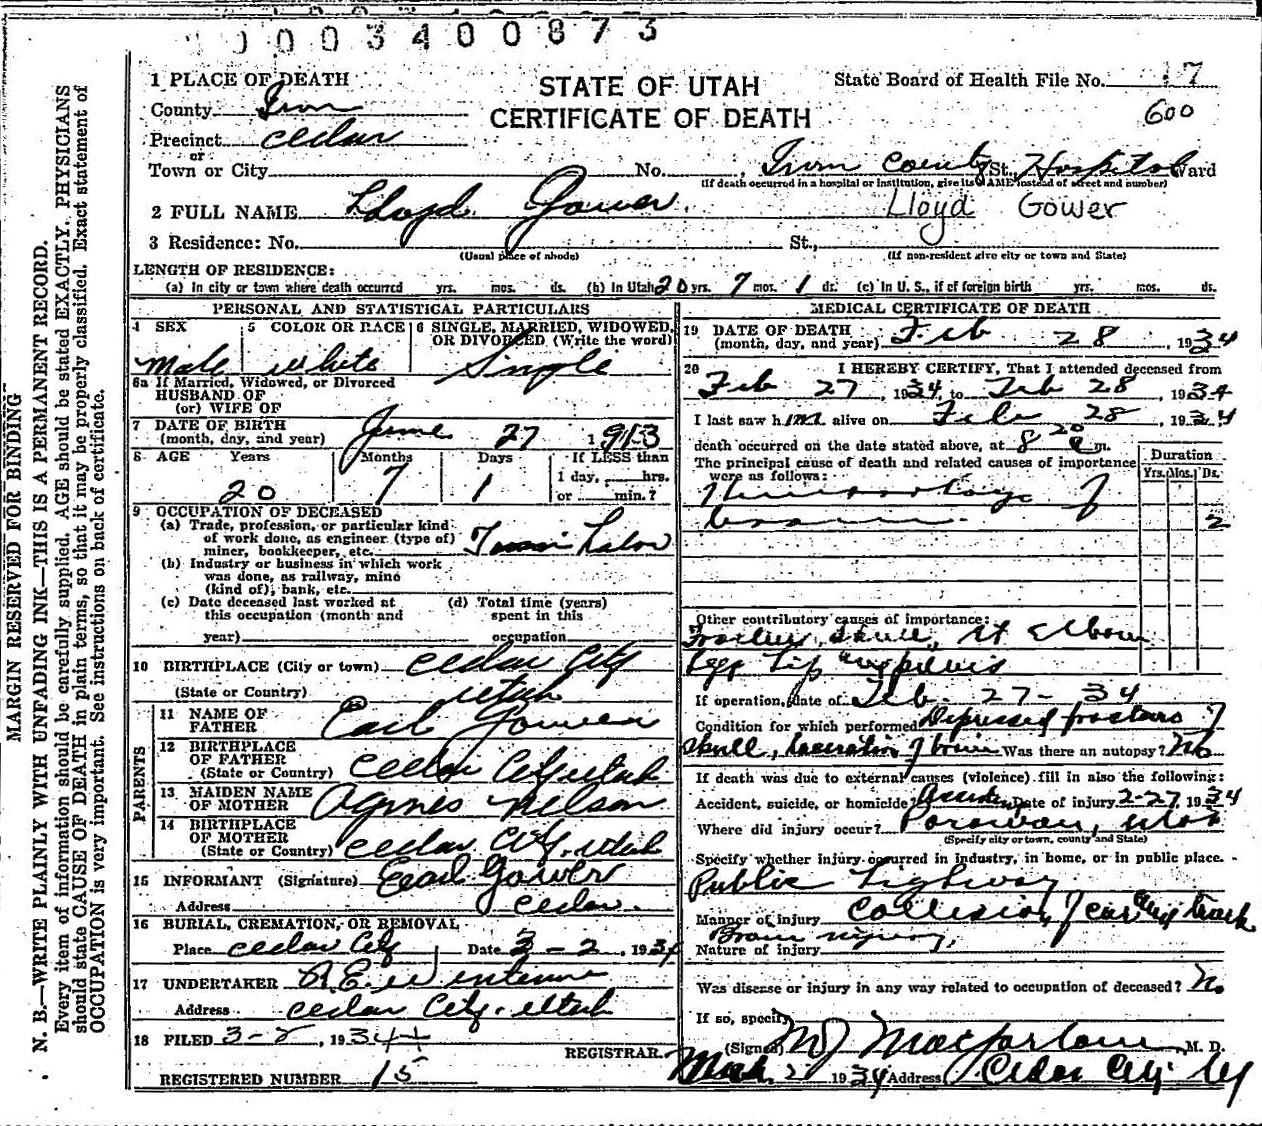 0003400873
1 PLACE OF DEATH
STATE OF UTAH
CERTIFICATE OF DEATH
State Board of Health File No. 17
600
County Iron
Precinct Cedar
or
Town or City No. , Iron County St., Hospital Ward
(If death occurred in a hospital or institution, give its NAME instead of street and number)
2 FULL NAME Lloyd Gower. Lloyd Gower
3 Residence: No. St.,
(Usual place of abode) (If non-resident give city or town and State)
LENGTH OF RESIDENCE:
(a) In city or town where death occurred yrs. mos. ds. (b) In Utah 20 yrs. 7 mos. 1 ds. (c) In U. S., if of foreign birth yrs. mos. ds.
MARGIN RESERVED FOR BINDING
N. B.—WRITE PLAINLY WITH UNFADING INK—THIS IS A PERMANENT RECORD.
Every item of information should be carefully supplied. AGE should be stated EXACTLY. PHYSICIANS
should state CAUSE OF DEATH in plain terms, so that it may be properly classified. Exact statement of
OCCUPATION is very important. See instructions on back of certificate.
PERSONAL AND STATISTICAL PARTICULARS
4 SEX 5 COLOR OR RACE 6 SINGLE, MARRIED, WIDOWED,
OR DIVORCED (Write the word)
Male White Single
6a If Married, Widowed, or Divorced
HUSBAND OF
(or) WIFE OF
7 DATE OF BIRTH
(month, day, and year) June 27 1913
8 AGE Years Months Days If LESS than
1 day, hrs.
or min.?
20 7 1
9 OCCUPATION OF DECEASED
(a) Trade, profession, or particular kind
of work done, as engineer (type of)
miner, bookkeeper, etc. Labor
(b) Industry or business in which work
was done, as railway, mine
(kind of), bank, etc.
(c) Date deceased last worked at
this occupation (month and
year)
(d) Total time (years)
spent in this
occupation
10 BIRTHPLACE (City or town) Cedar City
(State or Country) Utah
PARENTS
11 NAME OF
FATHER Earl Gower
12 BIRTHPLACE
OF FATHER
(State or Country) Cedar City Utah
13 MAIDEN NAME
OF MOTHER Agnes Nelson
14 BIRTHPLACE
OF MOTHER
(State or Country) Cedar City, Utah
15 INFORMANT (Signature) Earl Gower
Address Cedar.
16 BURIAL, CREMATION, OR REMOVAL
Place Cedar City Date 3-2, 1934
17 UNDERTAKER
Address Cedar City, Utah
18 FILED 3-2, 1934
REGISTRAR.
REGISTERED NUMBER 15
MEDICAL CERTIFICATE OF DEATH
19 DATE OF DEATH
(month, day, and year) Feb 28, 1934
20 I HEREBY CERTIFY, That I attended deceased from
Feb 27, 1934, to Feb 28, 1934
I last saw him alive on Feb 28, 1934
death occurred on the date stated above, at 8 20 a m.
The principal cause of death and related causes of importance
were as follows:
Duration
Yrs. Mos. Ds.
Hemorrhage of
brain. 2
Other contributory causes of importance:
Fracture, Skull, Rt Elbow
hip pelvis
If operation, date of Feb - 27 - 34
Condition for which performed Depressed fracture of
Skull, Laceration of brain Was there an autopsy? No
If death was due to external causes (violence) fill in also the following:
Accident, suicide, or homicide? Accident Date of injury 2-27, 1934
Where did injury occur? Parowan, Utah
(Specify city or town, county and State)
Specify whether injury occurred in industry, in home, or in public place.
Public Highway
Manner of injury Collision of car and truck
Nature of injury Brain injury,
Was disease or injury in any way related to occupation of deceased? No
If so, specify
(Signed) M J Macfarlane M. D.
Mch. 2 1934 Address Cedar City, U